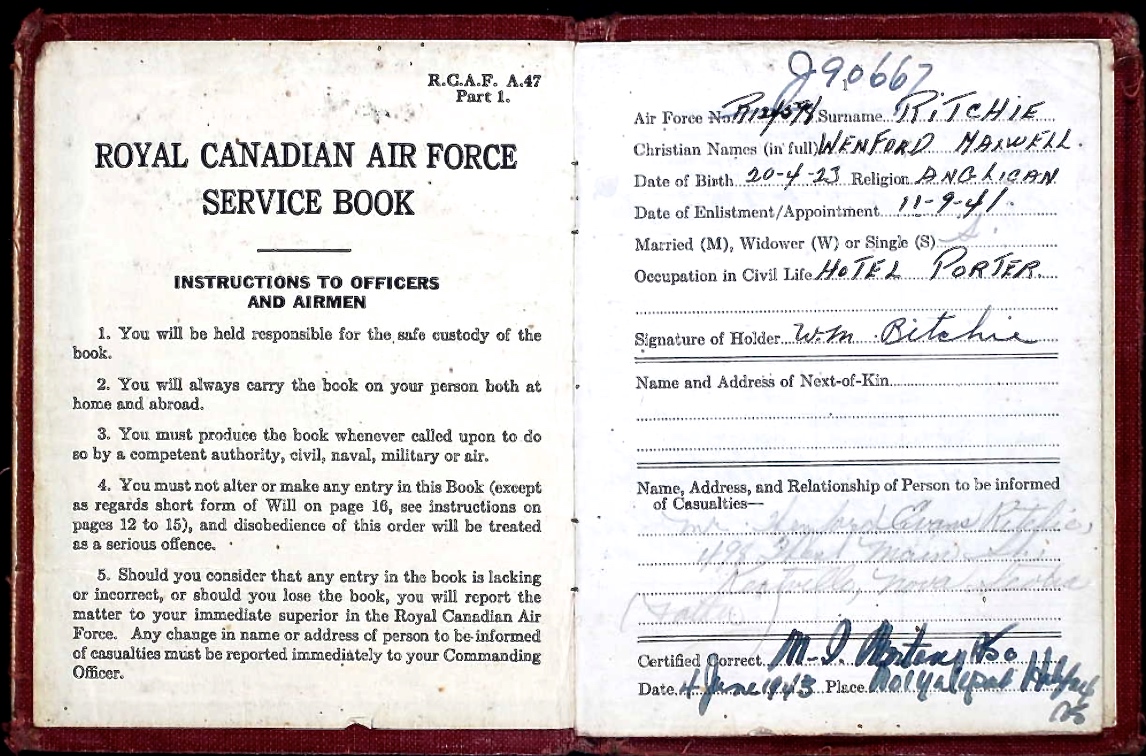 R.C.A.F. A.47
Part 1.
ROYAL CANADIAN AIR FORCE
SERVICE BOOK
INSTRUCTIONS TO OFFICERS
AND AIRMEN
1. You will be held responsible for the safe custody of the
book.
2. You will always carry the book on your person both at
home and abroad.
3. You must produce the book whenever called upon to do
so by a competent authority, civil, naval, military or air.
4. You must not alter or make any entry in this Book (except
as regards short form of Will on page 16, see instructions on
pages 12 to 15), and disobedience of this order will be treated
as a serious offence.
5. Should you consider that any entry in the book is lacking
or incorrect, or should you lose the book, you will report the
matter to your immediate superior in the Royal Canadian Air
Force. Any change in name or address of person to be informed
of casualties must be reported immediately to your Commanding
Officer.
J90667
Air Force No. Surname RITCHIE
Christian Names (in full) WENFORD MAXWELL.
Date of Birth 20-4-23 Religion ANGLICAN
Date of Enlistment/Appointment 11-9-41.
Married (M), Widower (W) or Single (S) S.
Occupation in Civil Life HOTEL PORTER
Signature of Holder W.M. Ritchie
Name and Address of Next-of-Kin
Name, Address, and Relationship of Person to be informed
of Casualties—
Mr. Evans Ritchie,
Main St.
Kentville, Nova Scotia
(Father)
Certified Correct M.
Date 4 June 1943 Place Halifax
NS